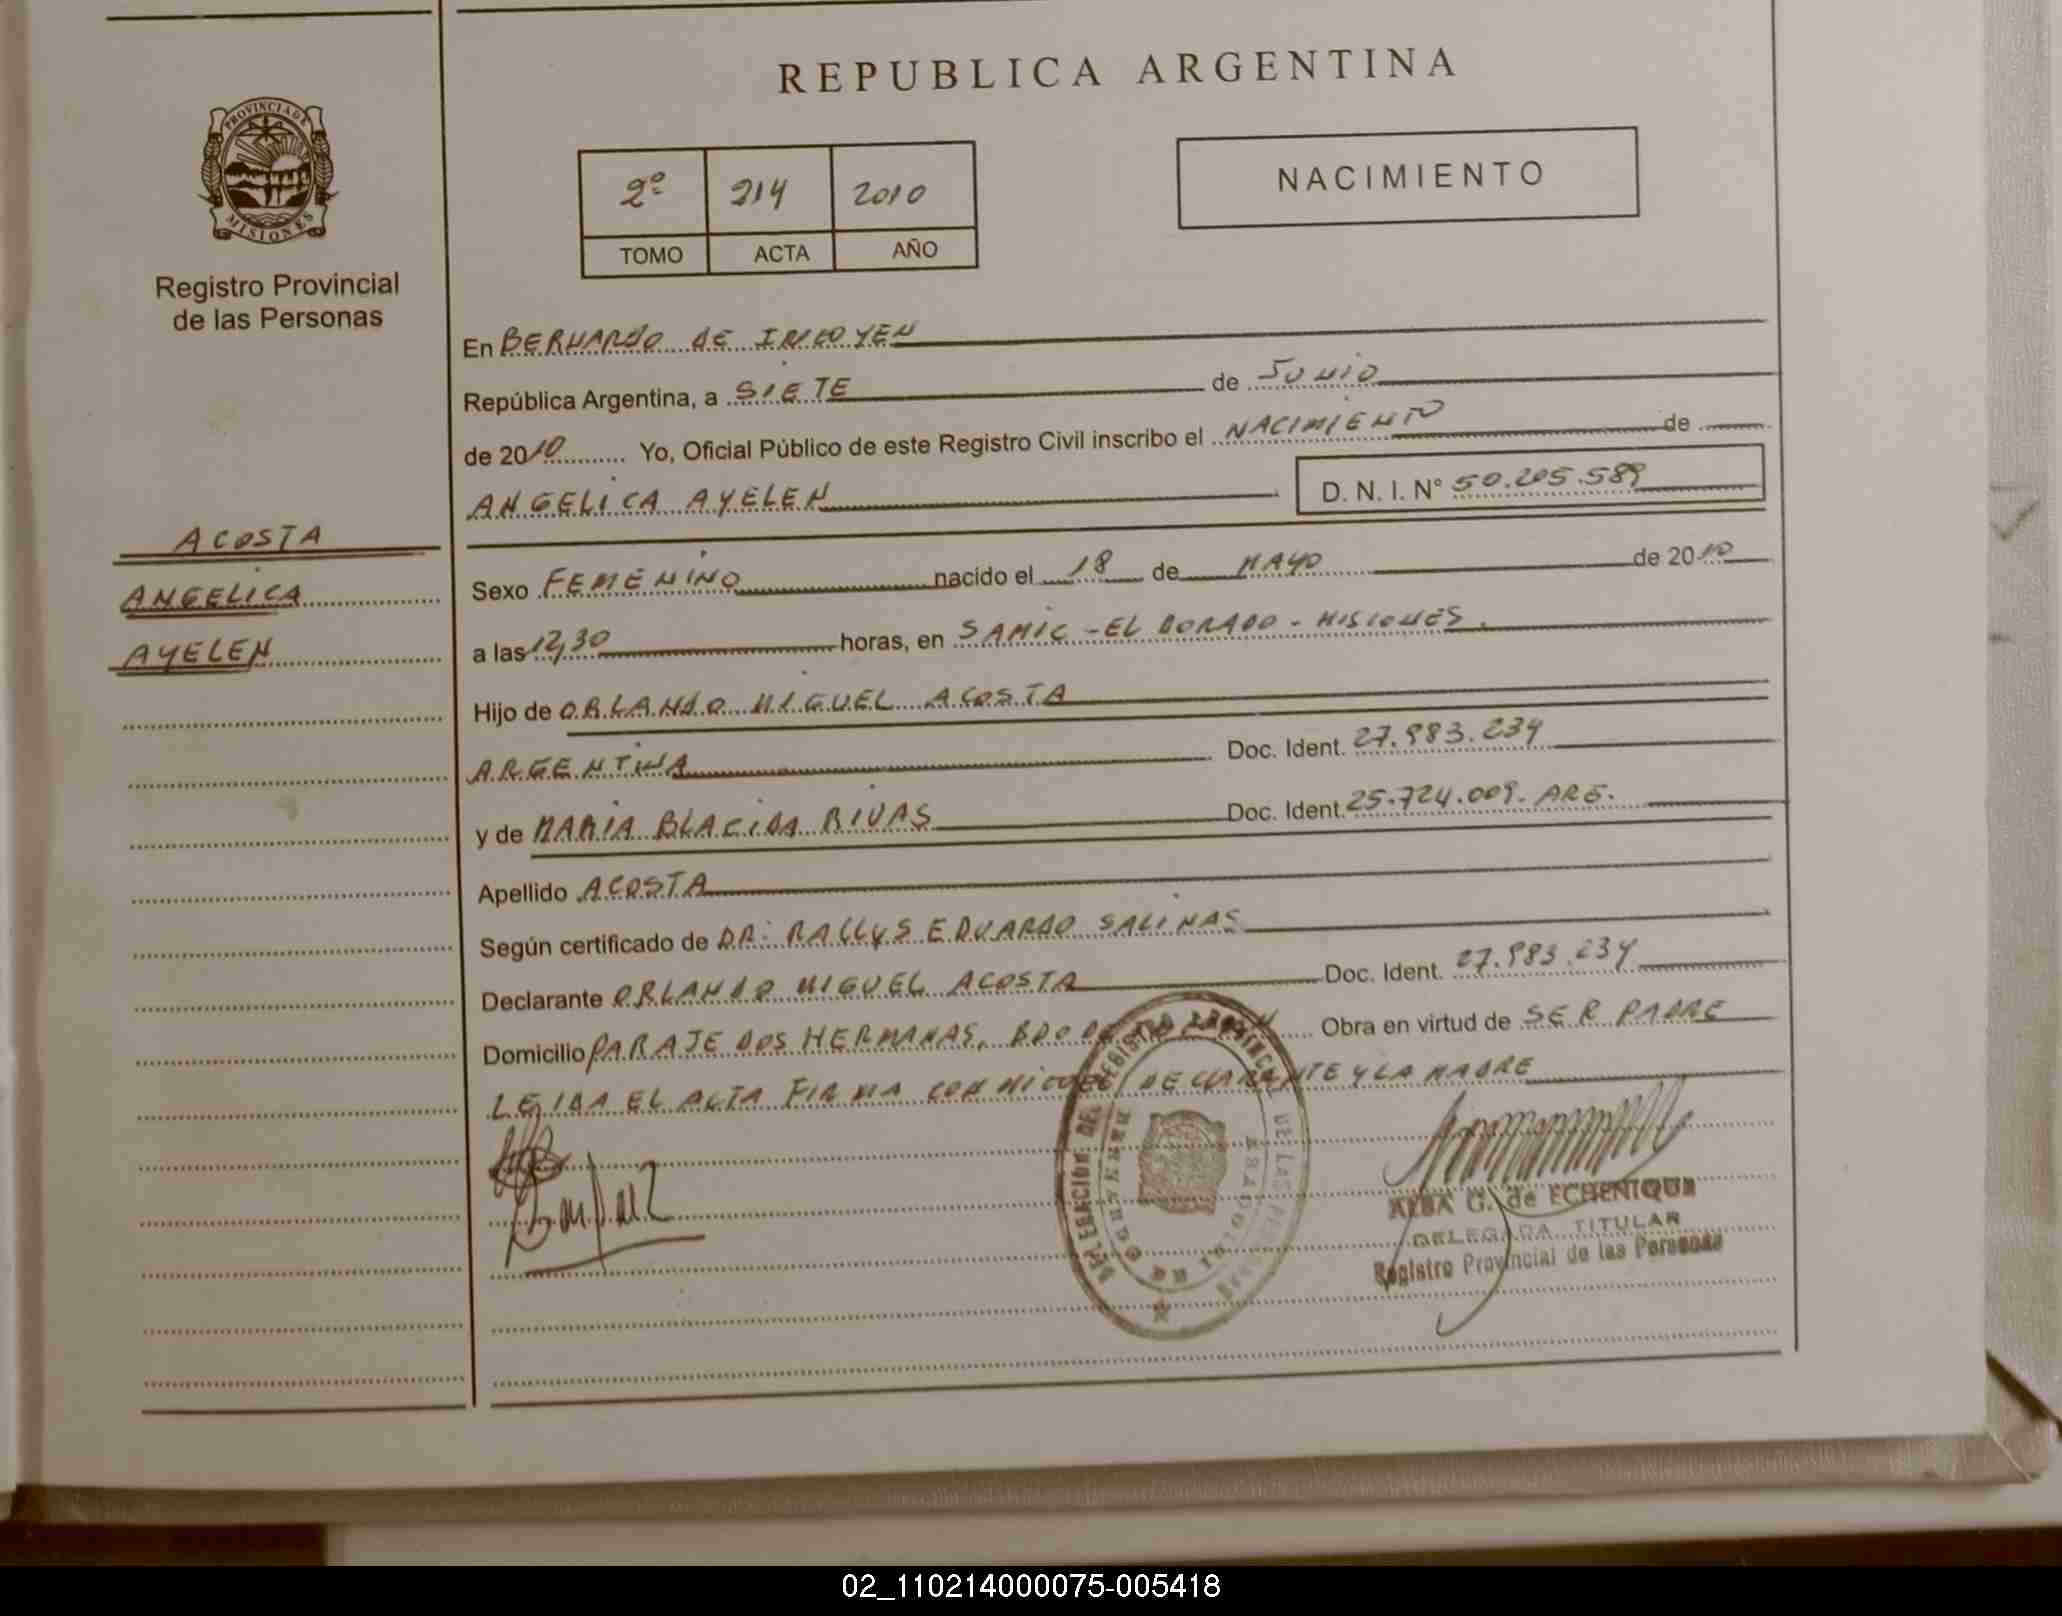 REPUBLICA ARGENTINA
PROVINCIA DE
MISIONES
Registro Provincial
de las Personas
2º 214 2010
TOMO ACTA AÑO
NACIMIENTO
En BERNARDO DE IRIGOYEN
República Argentina, a SIETE de JUNIO
de 2010 Yo, Oficial Público de este Registro Civil inscribo el NACIMIENTO de
ANGELICA AYELEN D. N. I. Nº 50.205.589
ACOSTA
ANGELICA
AYELEN
Sexo FEMENINO nacido el 18 de MAYO de 2010
a las 12,30 horas, en SAMIC - EL DORADO - MISIONES.
Hijo de ORLANDO MIGUEL ACOSTA
ARGENTINA Doc. Ident. 27.983.234
y de MARIA BLACIDA RIVAS Doc. Ident. 25.724.009- ARG.
Apellido ACOSTA
Según certificado de DR: RALLYS EDUARDO SALINAS
Declarante ORLANDO MIGUEL ACOSTA Doc. Ident. 27.983.234
Domicilio PARAJE DOS HERMANAS, BDO DE Obra en virtud de SER PADRE
LEIDA EL ACTA FIRMA CONMIGO EL DECLARANTE Y LA MADRE
DELEGACION DEL REGISTRO PROVINCIAL DE LAS PERSONAS
ALBA G. de ECHENIQUE
DELEGADA TITULAR
Registro Provincial de las Personas
02_110214000075-005418